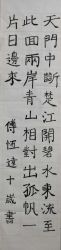 天門中斷楚江開碧水東流至
此回兩岸青山相對出孤帆一
片日邊來
傅恆達十歲書